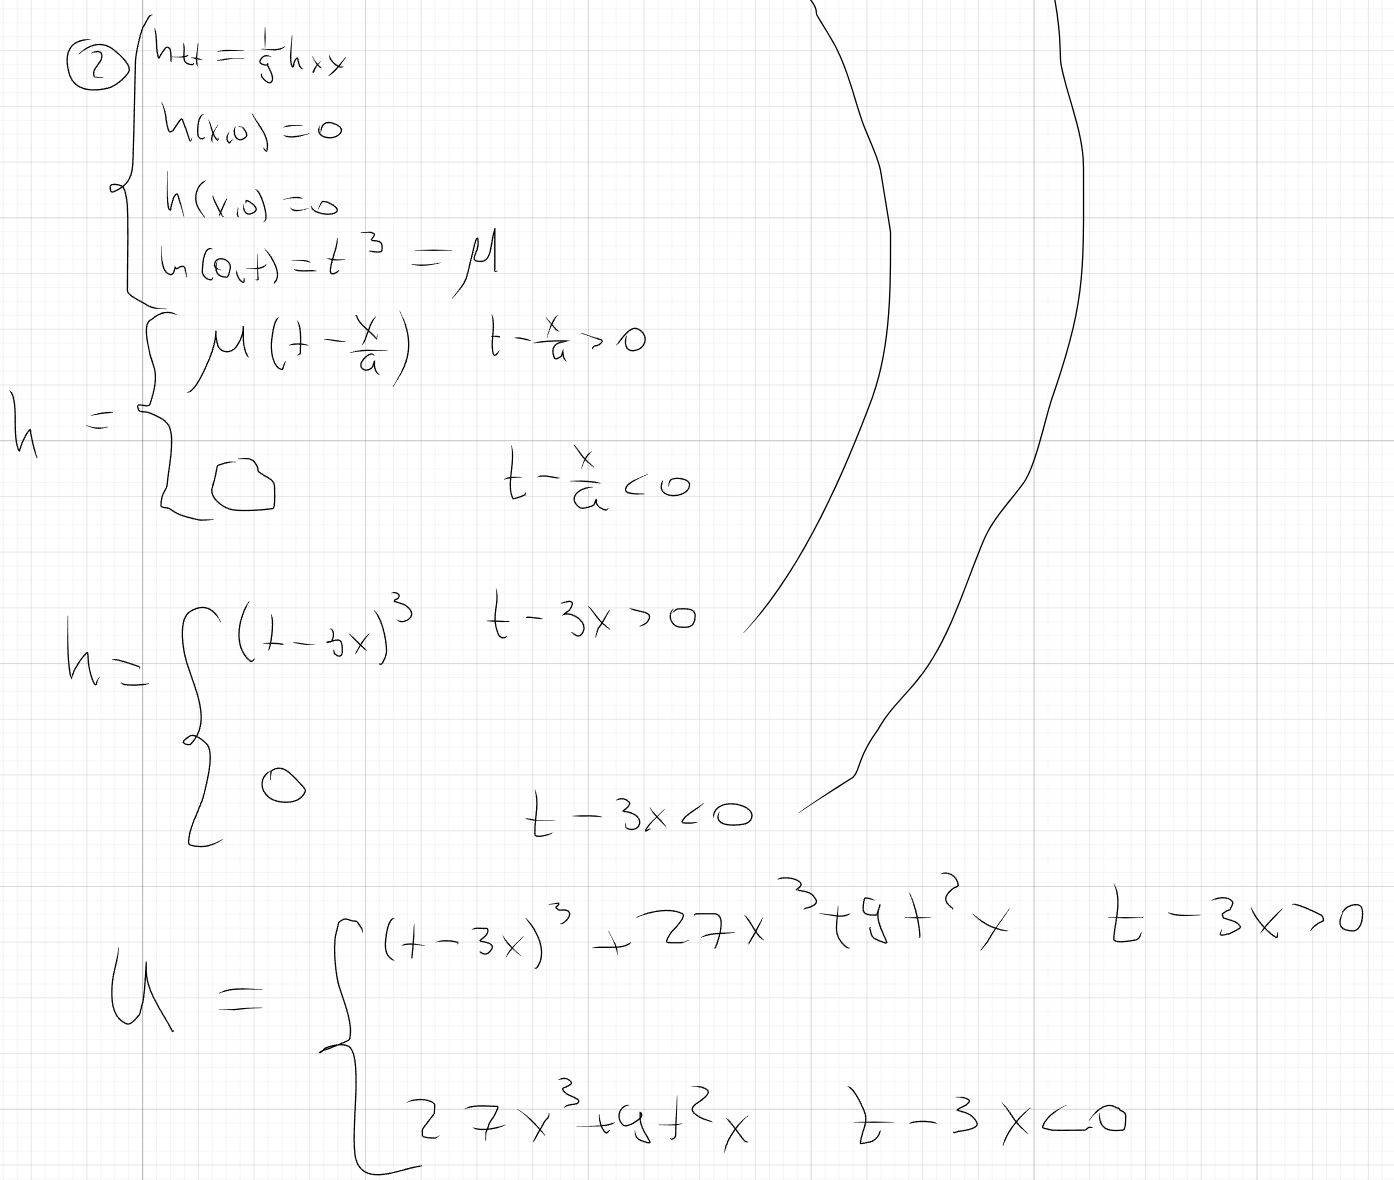 ② { h_tt = 1/9 h_xx
h(x,0) = 0
h(x,0) = 0
h(0,t) = t³ = μ
h = { μ(t - x/a)   t - x/a > 0
0   t - x/a < 0
h = { (t-3x)³   t - 3x > 0
0   t - 3x < 0
U = { (t-3x)³ + 27x³ + 9t²x   t - 3x > 0
27x³ + 9t²x   t - 3x < 0